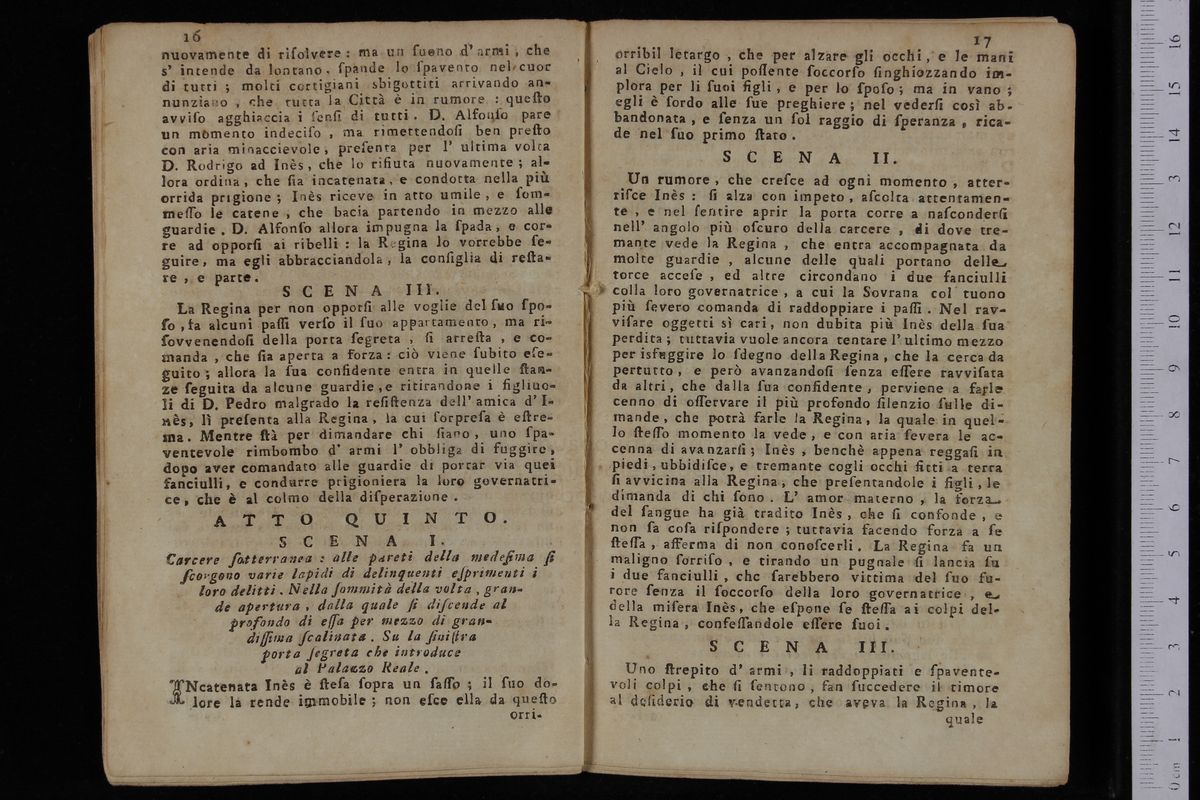 16
nuovamente di riſolvere : ma un ſuono d' armi , che
s' intende da lontano , ſpande lo ſpavento nel cuor
di tutti ; molti cortigiani sbigottiti arrivando an-
nunziano , che tutta la Città è in rumore : queſto
avviſo agghiaccia i ſenſi di tutti . D. Alfonſo pare
un momento indeciſo , ma rimettendoſi ben preſto
con aria minaccievole , preſenta per l' ultima volta
D. Rodrigo ad Inès , che lo rifiuta nuovamente ; al-
lora ordina , che ſia incatenata , e condotta nella più
orrida prigione ; Inès riceve in atto umile , e ſom-
meſſo le catene , che bacia partendo in mezzo alle
guardie . D. Alfonſo allora impugna la ſpada , e cor-
re ad opporſi ai ribelli : la Regina lo vorrebbe ſe-
guire , ma egli abbracciandola , la conſiglia di reſta-
re , e parte .
SCENA III.
La Regina per non opporſi alle voglie del ſuo ſpo-
ſo , fa alcuni paſſi verſo il ſuo appartamento , ma ri-
ſovvenendoſi della porta ſegreta , ſi arreſta , e co-
manda , che ſia aperta a forza : ciò viene ſubito eſe-
guito ; allora la ſua confidente entra in quelle ſtan-
ze ſeguita da alcune guardie , e ritirandone i figliuo-
li di D. Pedro malgrado la reſiſtenza dell' amica d' I-
nès , lì preſenta alla Regina , la cui ſorpreſa è eſtre-
ma . Mentre ſtà per dimandare chi ſiano , uno ſpa-
ventevole rimbombo d' armi l' obbliga di fuggire ,
dopo aver comandato alle guardie di portar via quei
fanciulli , e condurre prigioniera la loro governatri-
ce , che è al colmo della diſperazione .
ATTO QUINTO.
SCENA I.
Carcere ſotterranea : alle pareti della medeſima ſi
ſcorgono varie lapidi di delinquenti eſprimenti i
loro delitti . Nella ſommità della volta , gran-
de apertura , dalla quale ſi diſcende al
profondo di eſſa per mezzo di gran-
diſſima ſcalinata . Su la ſiniſtra
porta ſegreta che introduce
al Palazzo Reale .
INcatenata Inès è ſteſa ſopra un ſaſſo ; il ſuo do-
lore la rende immobile ; non eſce ella da queſto
orri-
17
orribil letargo , che per alzare gli occhi , e le mani
al Cielo , il cui poſſente ſoccorſo ſinghiozzando im-
plora per li ſuoi figli , e per lo ſpoſo ; ma in vano ;
egli è ſordo alle ſue preghiere ; nel vederſi così ab-
bandonata , e ſenza un ſol raggio di ſperanza , rica-
de nel ſuo primo ſtato .
SCENA II.
Un rumore , che creſce ad ogni momento , atter-
riſce Inès : ſi alza con impeto , aſcolta attentamen-
te , e nel ſentire aprir la porta corre a naſconderſi
nell' angolo più oſcuro della carcere , di dove tre-
mante vede la Regina , che entra accompagnata da
molte guardie , alcune delle quali portano delle
torce acceſe , ed altre circondano i due fanciulli
colla loro governatrice , a cui la Sovrana col tuono
più ſevero comanda di raddoppiare i paſſi . Nel rav-
viſare oggetti sì cari , non dubita più Inès della ſua
perdita ; tuttavia vuole ancora tentare l' ultimo mezzo
per isfuggire lo ſdegno della Regina , che la cerca da
pertutto , e però avanzandoſi ſenza eſſere ravviſata
da altri , che dalla ſua confidente , perviene a farle
cenno di oſſervare il più profondo ſilenzio ſulle di-
mande , che potrà farle la Regina , la quale in quel-
lo ſteſſo momento la vede , e con aria ſevera le ac-
cenna di avanzarſi ; Inès , benchè appena reggaſi in
piedi , ubbidiſce , e tremante cogli occhi fitti a terra
ſi avvicina alla Regina , che preſentandole i figli , le
dimanda di chi ſono . L' amor materno , la forza
del ſangue ha già tradito Inès , che ſi confonde , e
non ſa coſa riſpondere ; tuttavia facendo forza a ſe
ſteſſa , afferma di non conoſcerli . La Regina fa un
maligno ſorriſo , e tirando un pugnale ſi lancia ſu
i due fanciulli , che ſarebbero vittima del ſuo fu-
rore ſenza il ſoccorſo della loro governatrice , e
della miſera Inès , che eſpone ſe ſteſſa ai colpi del-
la Regina , confeſſandole eſſere ſuoi .
SCENA III.
Uno ſtrepito d' armi , li raddoppiati e ſpavente-
voli colpi , che ſi ſentono , fan ſuccedere il timore
al deſiderio di vendetta , che aveva la Regina , la
quale
0 cm 1 2 3 4 5 6 7 8 9 10 11 12 13 14 15 16